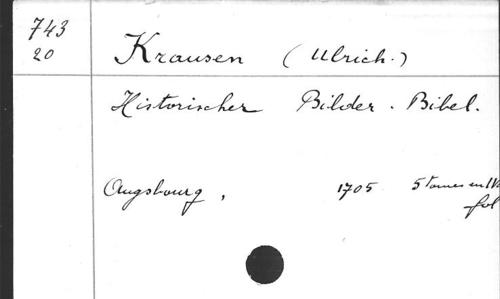 743
20
Krausen (Ulrich.)
Historischer Bilder. Bibel.
Augsbourg, 1705 5 tomes en 1 V
fol